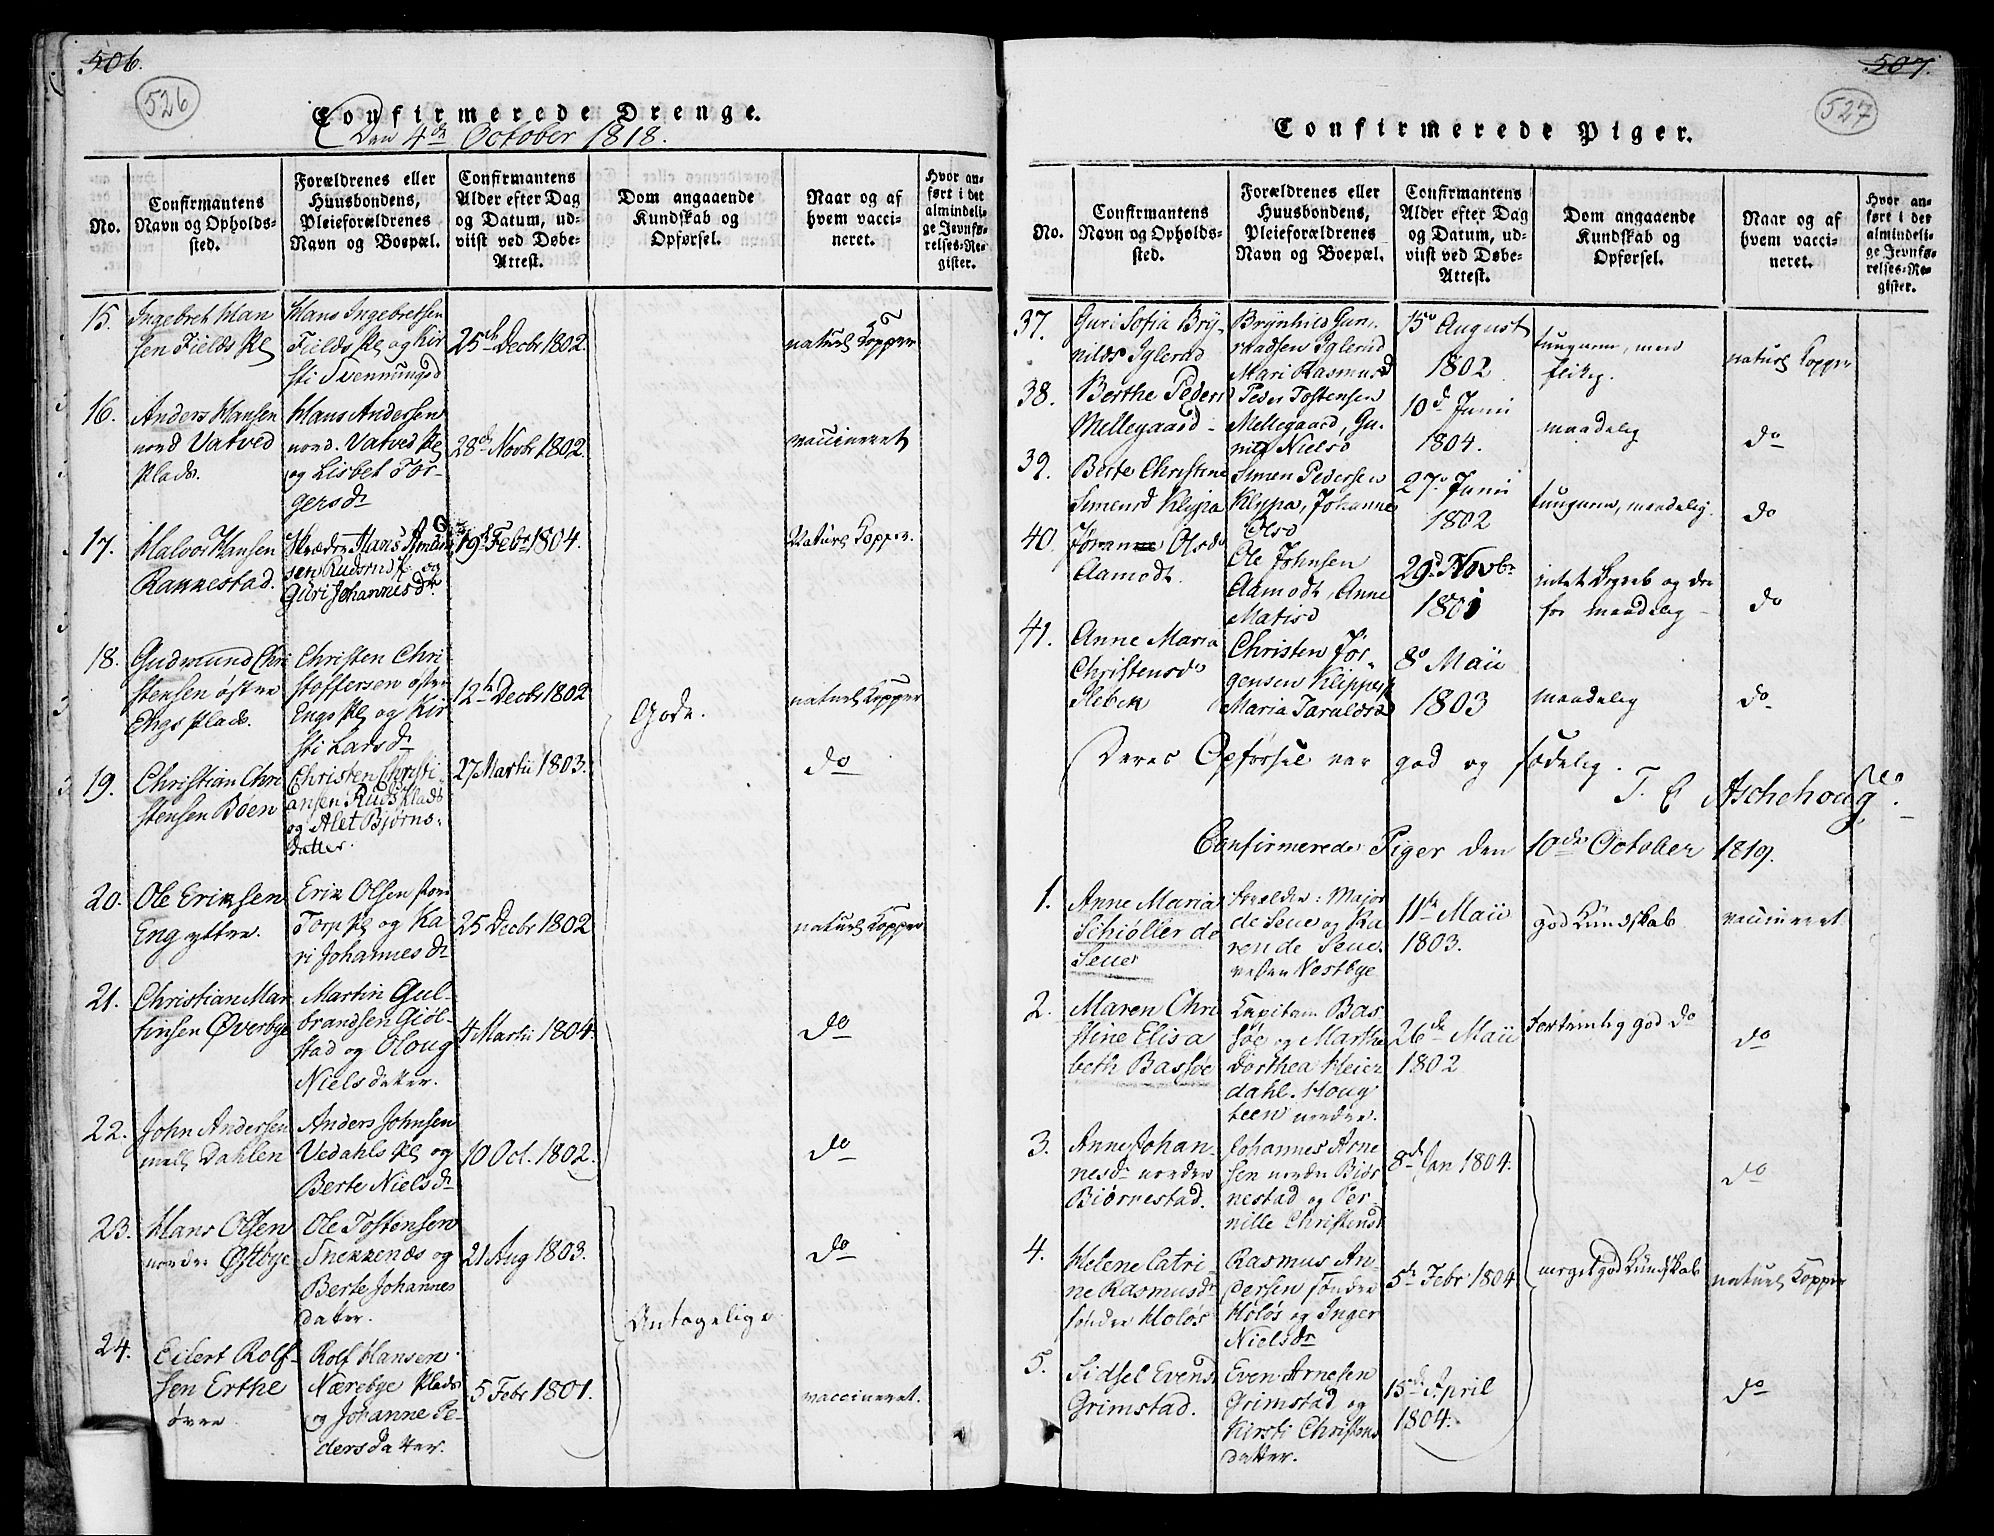 506.
526
Confirmerede Drenge.
Den 4de October 1818.
No.
Confirmantens
Navn og Opholds-
sted.
Forældrenes eller
Huusbondens,
Pleieforældrenes
Navn og Boepæl.
Confirmantens
Alder efter Dag
og Datum, ud-
viist ved Døbe-
Attest.
Dom angaaende
Kundskab og
Opførsel.
Naar og af
hvem vacci-
neret.
Hvor an-
ført i det
almindeli-
ge Jevnfø-
relses-Re-
gister.
15.
Ingebret Han
sen Fields Pl
Hans Ingebretsen
Fields Pl og Kir
sti Svennungsd
25de Decbr 1802
naturl Kopper
16.
Anders Hansen
nord Vatved
Plads.
Hans Andersen
nord. Vatved Pl
og Lisbet Tor-
gersdr
28de Novbr 1802.
vaccineret
17.
Halvor Hansen
Rannestad.
Hans Amund
sen Rudsrud og
Guri Johannesdr
19de Febr 1804.
Naturl Kopper.
18.
Gudmund Chri
stensen østre
Engs Plads.
Christen Chri
stoffersen østre
Engs Pl og Kir
sti Larsdr
12te Decbr 1802
Gode.
naturl Kopper
19.
Christian Chri
stensen Böen
Christen Christi
ansen Ruds Plads
og Alet Bjørns-
datter.
27 Martii 1803.
do
20.
Ole Eriksen
Eng yttre.
Erik Olsen
Torp Pl og Ka
ri Johannesdr
25 Decbr 1802
naturl Kopper
21.
Christian Mar
tinsen Øverbye
Martin Gul-
brandsen Giöl-
stad og Oloug
Nielsdatter.
4 Martii 1804.
do
22.
John Andersen
mell Dahlen
Anders Johnsen
Vedahls Pl og
Berte Nielsdr
10 Oct. 1802.
do
23.
Hans Olsen
nordre Østbye
Ole Tostensen
Snekkenæs og
Berte Johannes
datter.
21 Aug 1803.
Antagelige.
do
24.
Eilert Rolf-
sen Erthe
øvre
Rolf Hansen
Nærebye Plads
og Johanne Pe-
dersdatter.
5 Febr 1801.
vaccineret.
507.
527
Confirmerede Piger.
No.
Confirmantens
Navn og Opholds-
sted.
Forældrenes eller
Huusbondens,
Pleieforældrenes
Navn og Boepæl.
Confirmantens
Alder efter Dag
og Datum, ud-
viist ved Døbe-
Attest.
Dom angaaende
Kundskab og
Opførsel.
Naar og af
hvem vacci-
neret.
Hvor an-
ført i det
almindeli-
ge Jevnfø-
relses-Re-
gister.
37.
Guri Sofia Bry-
nilds Iglerud
Brynhild Gun-
Iglerud
Mari Rasmusd
15o August
1802
tungnem, men
flitig.
naturl Kopper
38.
Berthe Peders
Mellegaard
Peder Tostensen
Mellegaard, Gu-
nild Nielsd
10d Junii
1804.
maadelig
do
39.
Berte Christine
Simensd Klypa
Simen Pedersen
Klypa, Johanne
Olsd
27o Junii
1802
tungnem, maadelig.
do
40.
Olsd
Aamodt.
Ole Johnsen
Aamodt, Anne
Matisd
29d Novbr
1801
intet Begreb og der
for maadelig
do
41.
Anne Maria
Christensd
Sleben
Christen Jør-
gensen
Maria Taraldsd
8o Maii
1803
maadelig
do
Deres Opførsel var god og sædelig.
T. E Aschehoug
Confirmerede Piger den 10de October 1819.
1.
Anne Maria
Schiøller de
Seue
Forældre: Major
de Seue og Ka
ren de Seue.
vestre Nostbye
11te Maii
1803.
god Kundskab
vaccineret
2.
Maren Chri
stine Elisa
beth Bassøe
Kapitain Bas
søe og Marthe
Dorthea Heier
dahl. Houg
teen nordre.
26de Maii
1802
Temmelig god do
do
3.
Anne Johan-
nesdr nordre
Biørnestad.
Johannes Arne
sen nordre Biør
nestad og Per-
nille Christensd
8d Jan 1804.
do
4.
Helene Catri-
ne Rasmusdr
søndre Holøs
Rasmus An-
dersen søndre
Holøs og Inger
Nielsdr
5te Febr 1804
meget god Kundskab
naturl Kopper
5.
Sidsel Evensd
Grimstad.
Even Arnesen
Grimstad og
Kirsti Christens
datter.
15de April
1804.
do